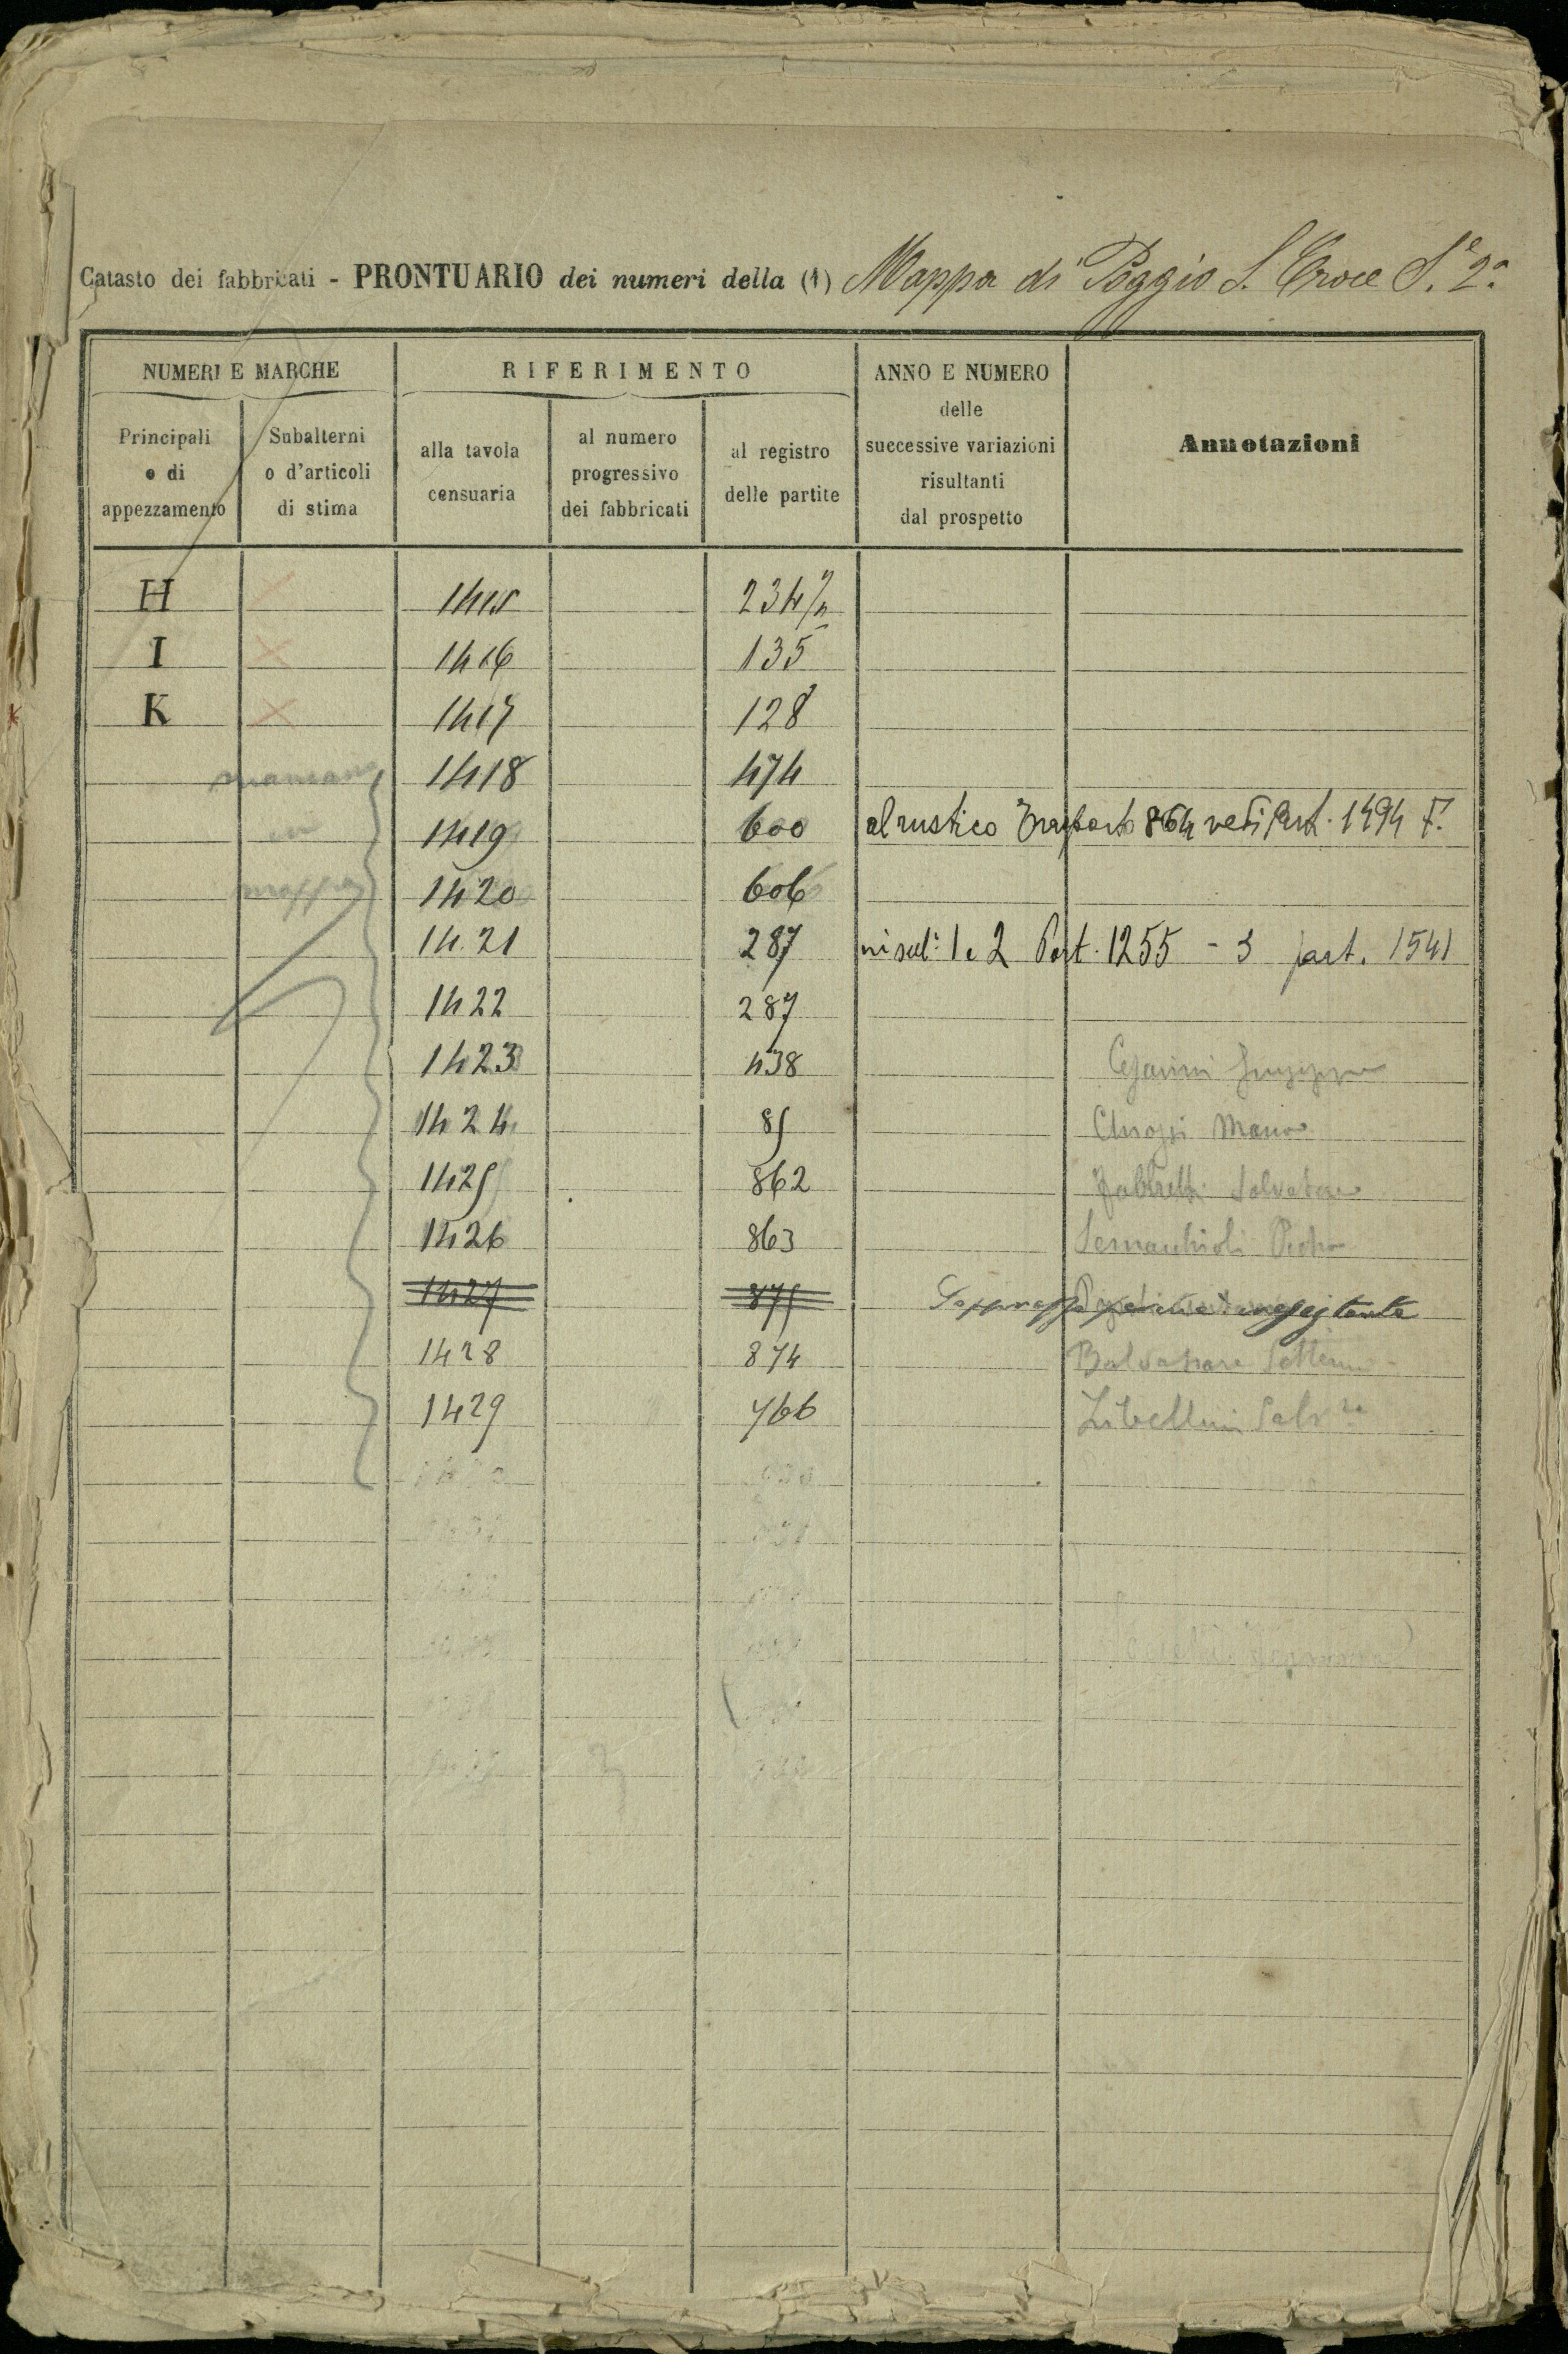 Catasto dei fabbricati - PRONTUARIO dei numeri della (1) Mappa di Poggio S. Croce S.e 2.a
NUMERI E MARCHE
RIFERIMENTO
ANNO E NUMERO
delle
successive variazioni
risultanti
dal prospetto
Annotazioni
Principali
o di
appezzamento
Subalterni
o d'articoli
di stima
alla tavola
censuaria
al numero
progressivo
dei fabbricati
al registro
delle partite
H 1415 234/2
I × 1416 135
K × 1417 128
mancano 1418 474
in 1419 600 al rustico Trasporto 864 vedi Part. 1494 F.
mappa 1420 606
1421 287 1 e 2 Part. 1255 - 3 part. 1541
1422 287
1423 438 Giuseppe
1424 85
1425 862 Salvatore
1426 863 Sernacchioli Pietro
1427 875 inesistente
1428 874 Baldassare
1429 766 Libellini Salv.re